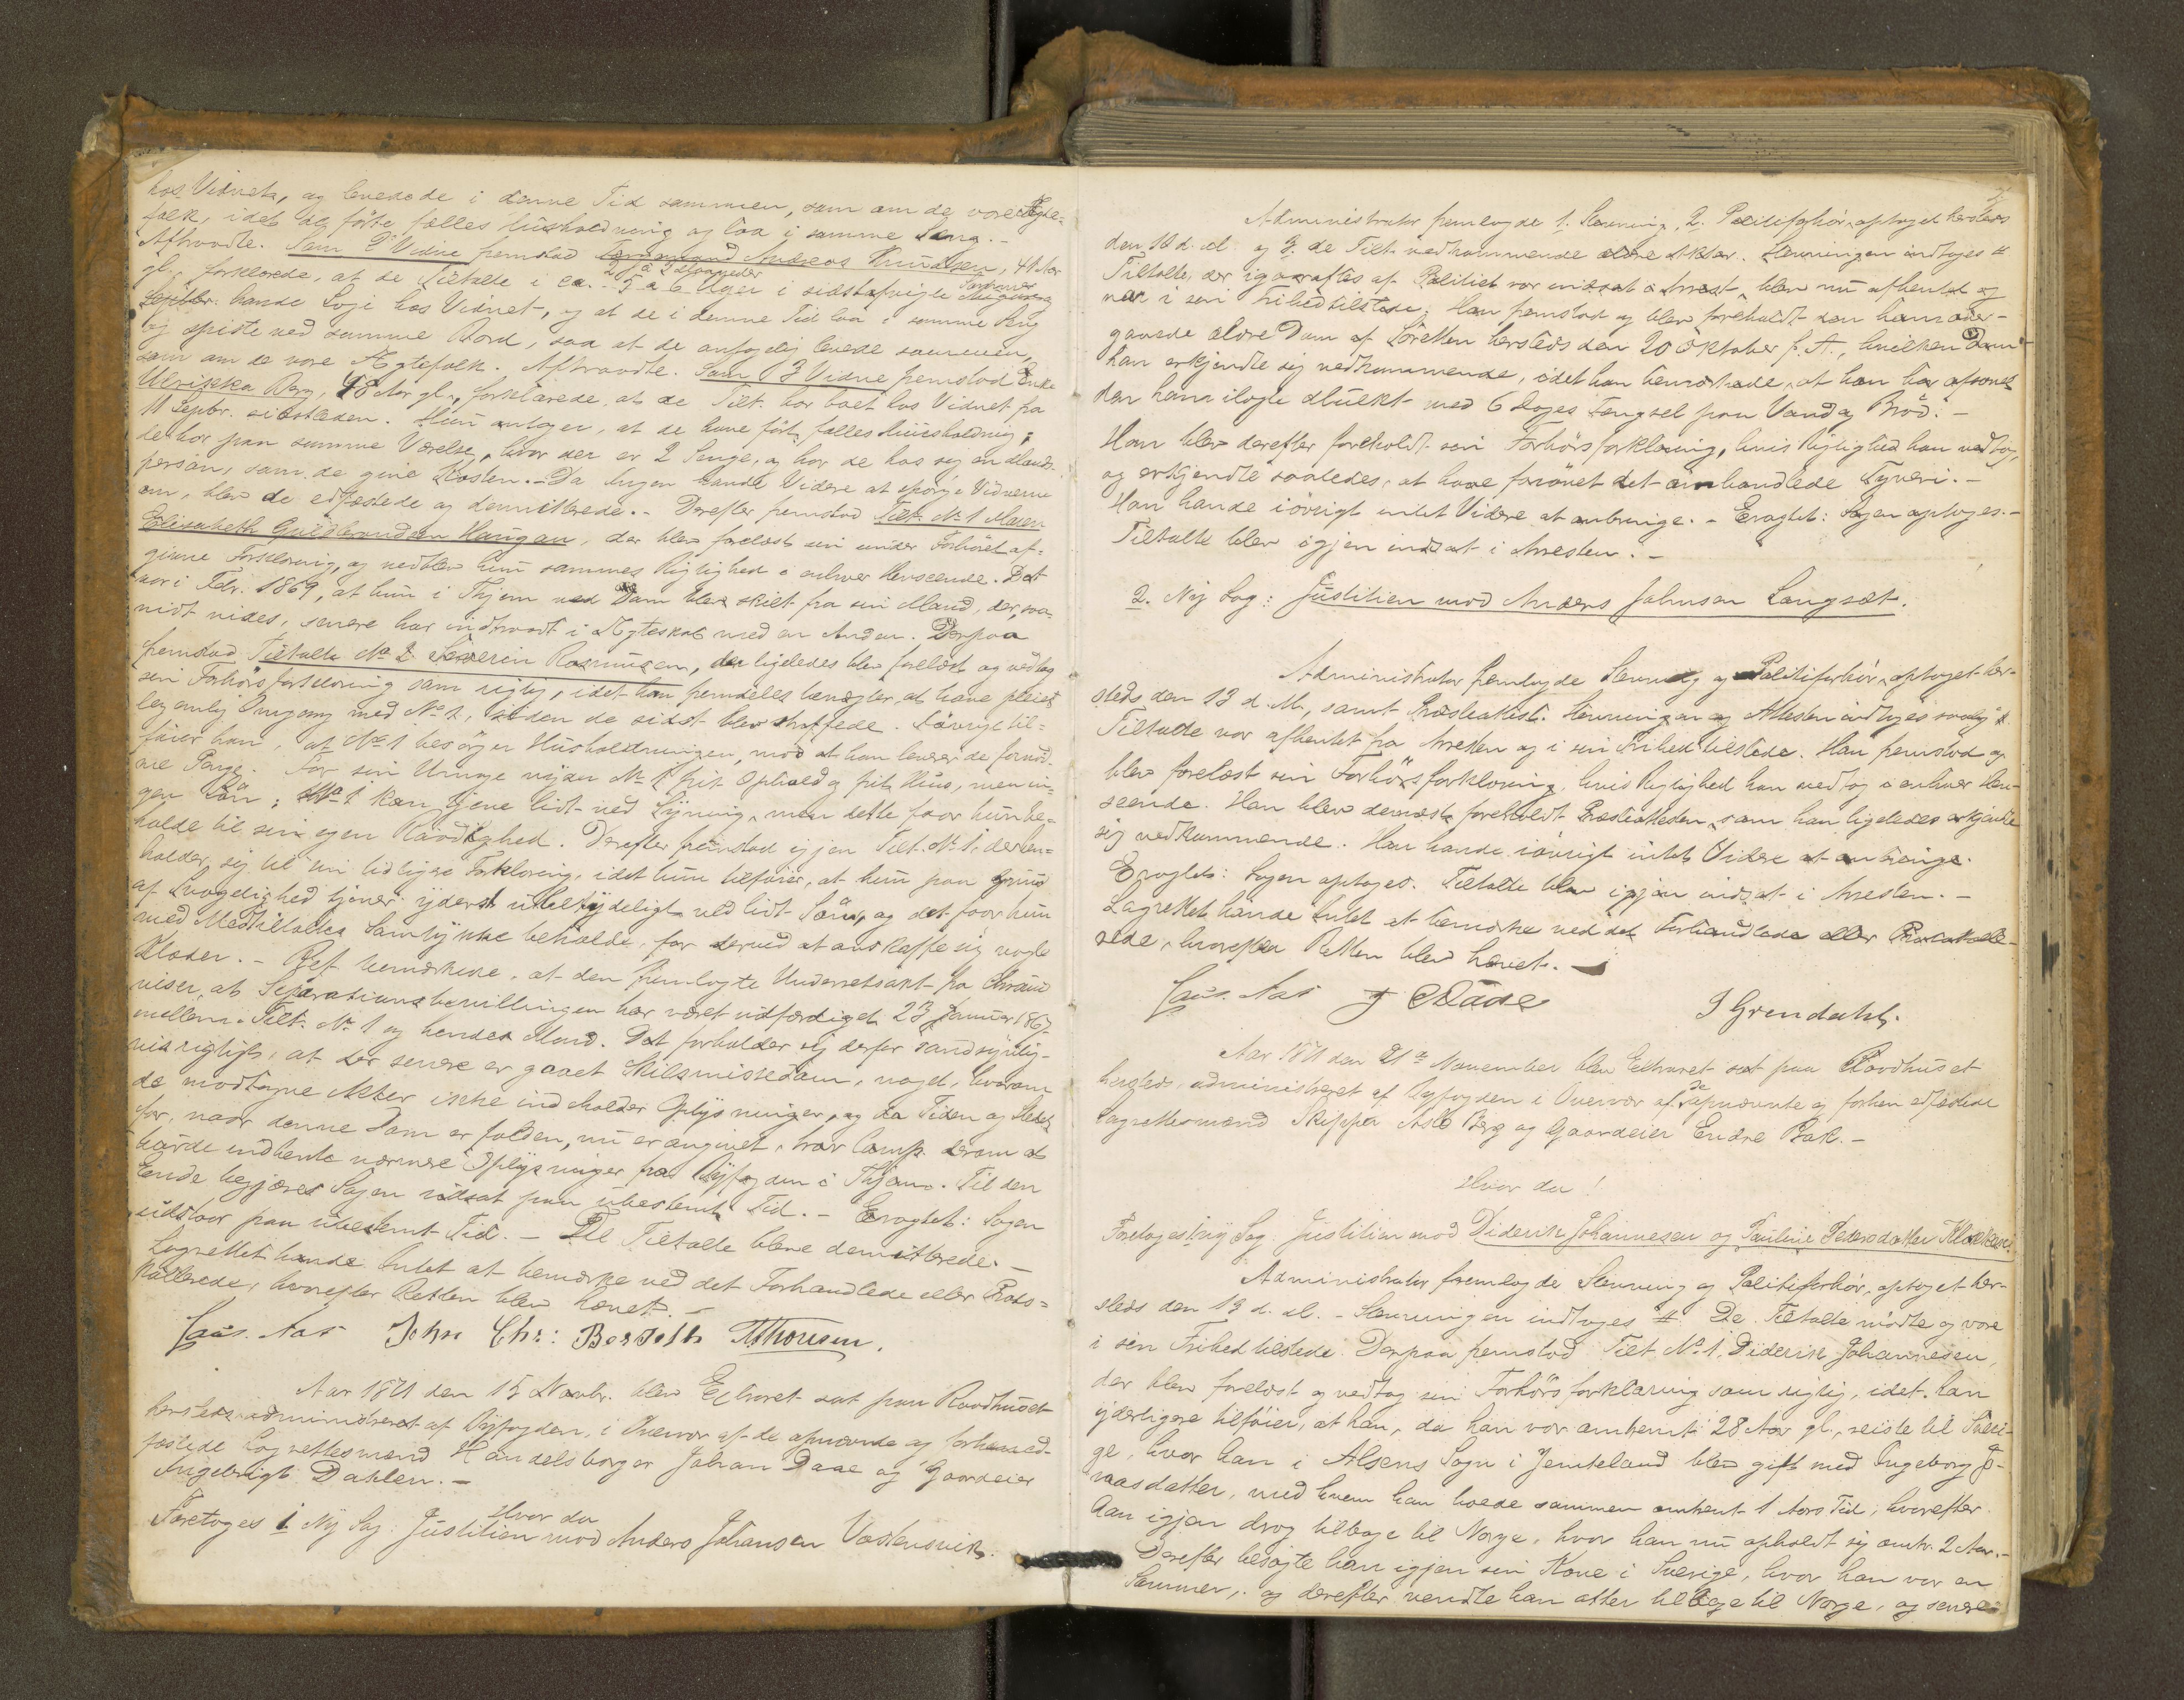 hos Vidnet, og levede i denne Tid sammen, som om de vare Ægte-
folk, idet de førte fælles Huusholdning og laa i samme Seng. -
Afhraadte. Som 2' Vidne fremstod Formand Andreas Knudsen, 41 Aar
gl., forklarede, at de Tiltalte i ca. 5 a 6 Uger i sidstafvigte
Septbr. havde Logi hos Vidnet, og at de i denne Tid laa i samme Seng
og spiste ved samme Bord, saa at de antagelig levede sammen,
som om de vare Ægtefolk. Aftraadte. Som 3 Vidne fremstod Enke
Ulrikka Berg, 48 Aar gl., forklarede at de Tilt. har boet hos Vidnet fra
11 Septbr. sidstleden. Hun antager, at de have ført fælles Huusholdning;
de bor paa samme Værelse, hvor der er 2 Senge, og har de hos sig en Mands-
person, som de give Kosten. - Da Ingen havde Videre at spørge Vidnerne
om, blev de edfæstede og demitterede. - Derefter fremstod Tilt. No 1 Maren
Elisabeth Guldbrandsen Haugan, der blev forelæst sin under Forhøret af-
givne Forklaring, og vedblev hun sammes Rigtighed i enhver Henseende. Det
var i Febr. 1869, at hun i Thjem ved Dom blev skilt fra sin Mand, der, saa-
vidt vides, senere har indtraadt i Ægteskab med en Anden. Derpaa
fremstod Tiltalte No 2 Severin Rasmussen, der ligeledes blev forelæst og vedtog
sin Forhørsforklaring som rigtig, idet han fremdeles benægter at have pleiet
legemlig Omgang med No 1, siden de sidst blev straffede. Iøvrigt til-
føier han, at No 1 besørger Husholdningen, mod at han leverer de fornød-
ne Penge. For sin Umage nyder No 1 frit Ophold og frit Huus, men in-
gen Løn; No 1 kan tjene lidt ved Syning, men dette faar hun be-
holde til sin egen Raadighed. Derefter fremstod igjen Tilt. No 1, der hen-
holder sig til sin tidligere Forklaring, idet hun tilføier, at hun paa Grund
af Svagelighed tjener yderst ubetydeligt ved lidt Søm, og det faar hun
med Medtiltaltes Samtykke beholde, for derved at anskaffe sig nogle
Klæder. - Act. bemærkede, at den fremlagte Underretsakt fra
viser, at Separationsbevillingen har været udfærdiget 23 Januar 1867
mellem Tilt. No 1 og hendes Mand. Det forholder sig derfor sandsynlig-
vis rigtigt, at der senere er gaaet Skilsmissedom, noget, hvorom
de modtagne Akter ikke indeholder Oplysninger, og da Tiden og Stedet
for, naar denne Dom er falden, nu er angivet, har Comp. derom at
burde indhente nærmere Oplysninger fra Byfogden i Thjem. Til den
Ende begjæres Sagen udsat paa ubestemt Tid. - Eragtet: Sagen
udstaar paa ubestemt Tid. - De Tiltalte bleve demitterede. -
Lagrettet havde Intet at bemærke ved det Forhandlede eller Proto-
kollerede, hvorefter Retten blev hævet. -
Caus. Aas John Chr: Berseth Thoresen.
Aar 1871 den 15 Novbr. blev Extraret sat paa Raadhuset
hersteds administreret af Byfogden, i Overvær af de opnævnte og forhen ed-
fæstede Lagrettesmænd Handelsborger Johan Daae og Gaardeier
Ingebrigt Dahlen. -
Hvor da
Foretoges 1 Ny Sag: Justitien mod Anders Johansen Vadtensvik.
Administrator fremlagde 1. Stevning, 2. Politiforhør, optaget hersteds
den 10 d. M. og 3. de Tilt. vedkommende ældre Akter. Stevningen indtages #
Tiltalte, der igaaraftes af Politiet var indsat i Arrest, blev nu afhentet og
var i sin Frihed tilstede. Han fremstod og blev foreholdt den ham over-
gaaede ældre Dom af Søretten hersteds den 20 Oktober f. A., hvilken Dom
han erkjendte sig vedkommende, idet han bemærkede, at han har afsonet
den ham ilagte Mulkt med 6 Dages Fængsel paa Vand og Brød. -
Han blev derefter foreholdt sin Forhørsforklaring, hvis Rigtighed han vedtog,
og erkjendte saaledes, at have forøvet det omhandlede Tyveri. -
Han havde iøvrigt intet Videre at anbringe. - Eragtet: Sagen optages. -
Tiltalte blev igjen indsat i Arresten. -
2. Ny Sag: Justitien mod Anders Johnsen Langsæt.
Administrator fremlagde Stevning og Politiforhør, optaget her-
steds den 13 d. M., samt Præsteattest. Stevningen og Attesten indtages saal. #
Tiltalte var afhentet fra Arresten og i sin Frihed tilstede. Han fremstod og
blev forelæst sin Forhørsforklaring, hvis Rigtighed han vedtog i enhver Hen-
seende. Han blev dernæst foreholdt Præsteattesten, som han ligeledes erkjendte
sig vedkommende. Han havde iøvrigt intet Videre at anbringe.
Eragtet: Sagen optages. Tiltalte blev igjen indsat i Arresten. -
Lagrettet havde Intet at bemærke ved det Forhandlede eller Protokolle-
rede, hvorefter Retten blev hævet. -
Caus. Aas J Daae I Grendahl.
Aar 1871 den 21de November blev Extraret sat paa Raadhuset
hersteds, administreret af Byfogden i Overvær af de opnævnte og forhen edfæstede
Lagrettesmænd Skipper Asle Berg og Gaardeier Endre Bak. -
Hvor da!
Foretoges Ny Sag. Justitien mod Diderik Johannesen og Pauline Pedersdatter
Administrator fremlagde Stevning og Politiforhør, optaget her-
steds den 13 d. M. - Stevningen indtages #. De Tiltalte mødte og vare
i sin Frihed tilstede. Derpaa fremstod Tilt No. 1, Diderik Johannesen,
der blev forelæst og vedtog sin Forhørsforklaring som rigtig, idet han
yderligere tilføier, at han, da han var omtrent 28 Aar gl., reiste til Sveri-
ge, hvor han i Alsens Sogn i Jemteland blev gift med Ingeborg Jo-
nasdatter, med hvem han boede sammen omtrent 1 Aars Tid, hvorefter
han igjen drog tilbage til Norge, hvor han nu opholdt sig omtr. 2 Aar. -
Derefter besøgte han igjen sin Kone i Sverige, hvor han var en
Sommer, og derefter vendte han atter tilbage til Norge, og senere